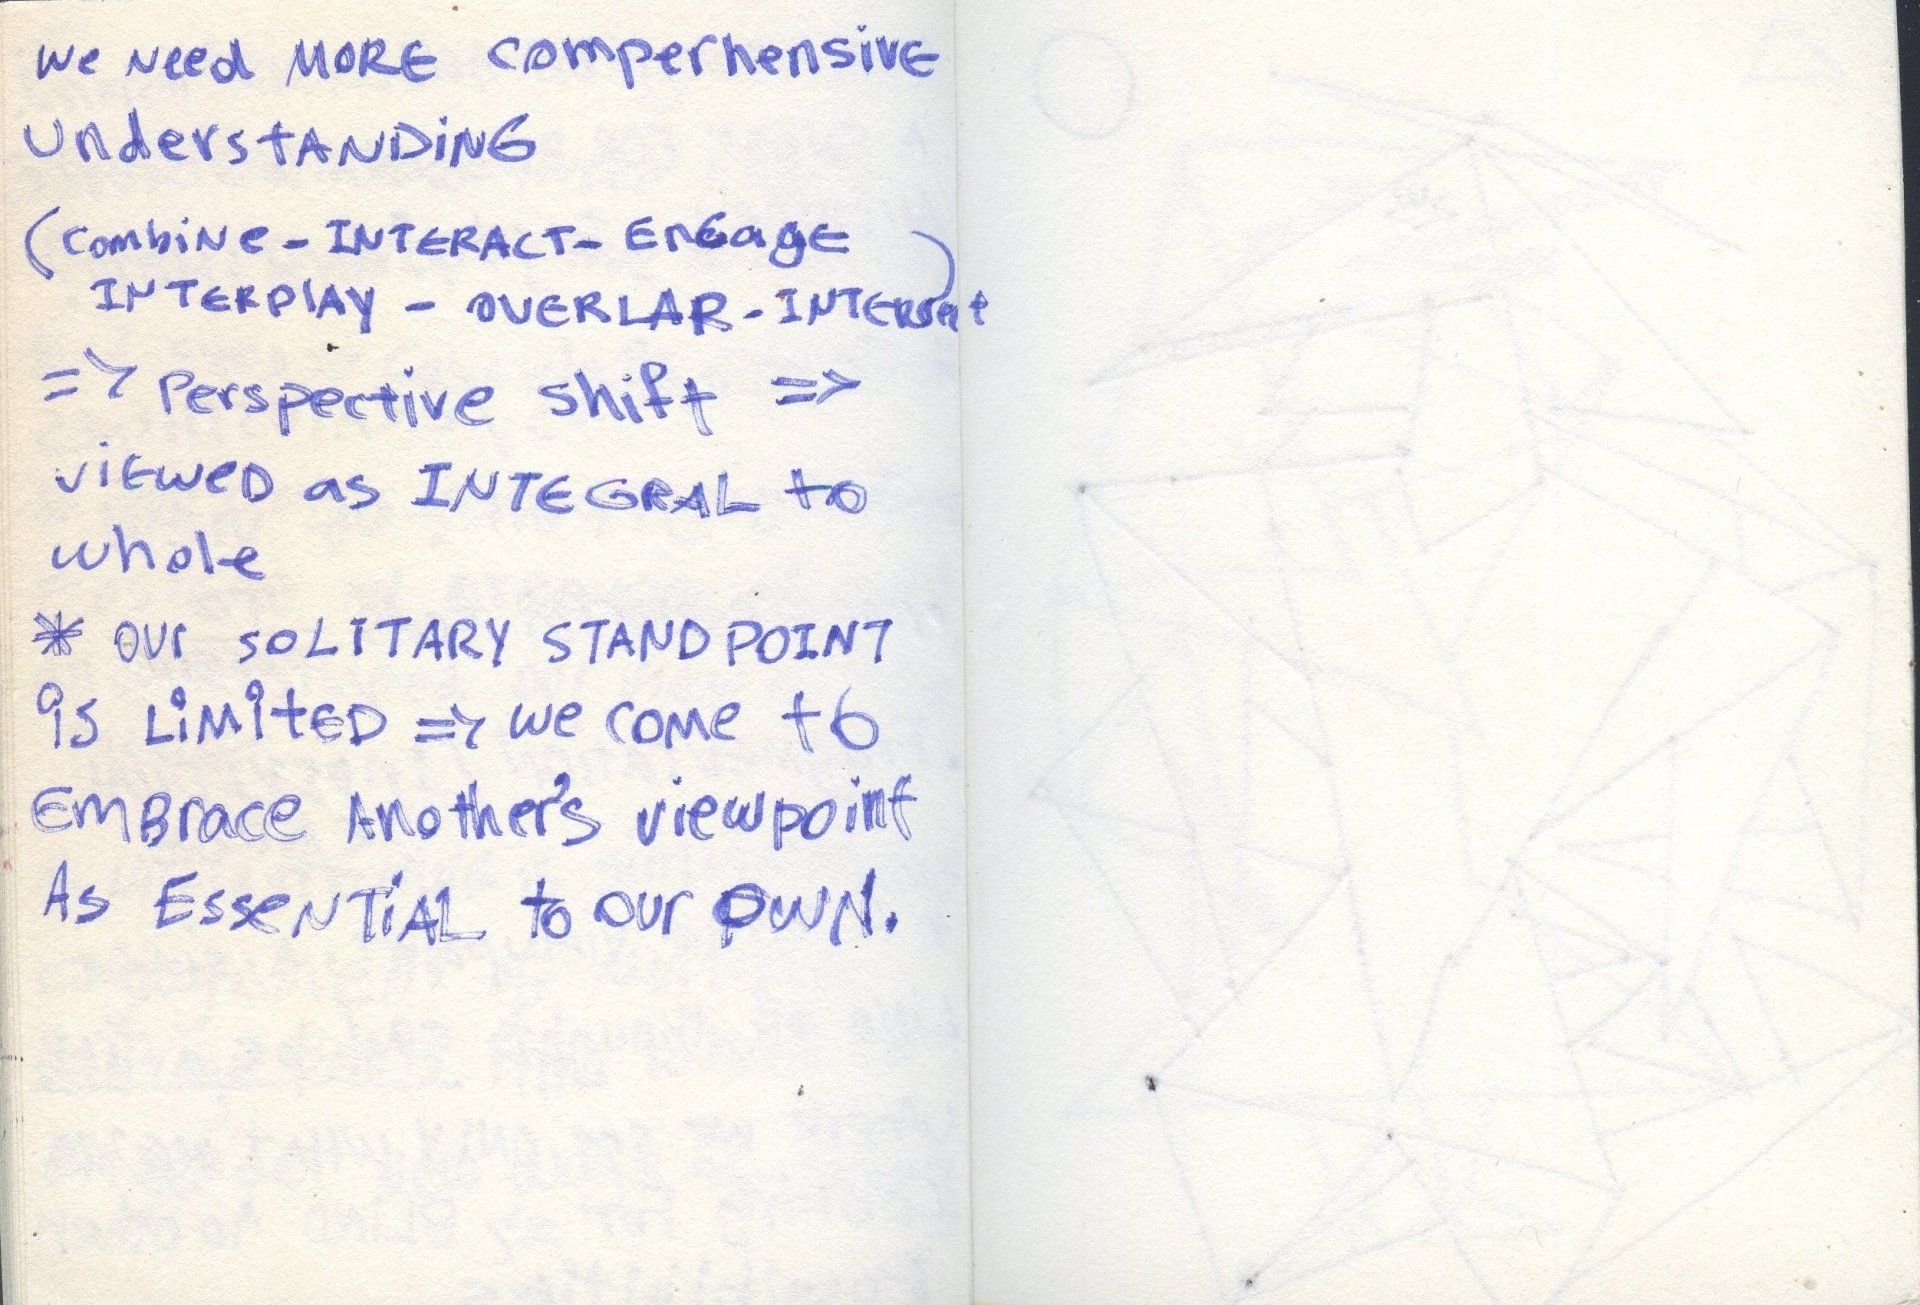 we need MORE comperhensive
understANDING
(combine - INTERACT - EnGage
INTERPlAY - OVERLAR - INTERsect)
=> Perspective shift =>
viewed as INTEGRAL to
whole
* our SOLITARY STANDPOINT
is LiMitED => we come to
EmBrace Another's viewpoint
As EssenTiAL to our OWN.